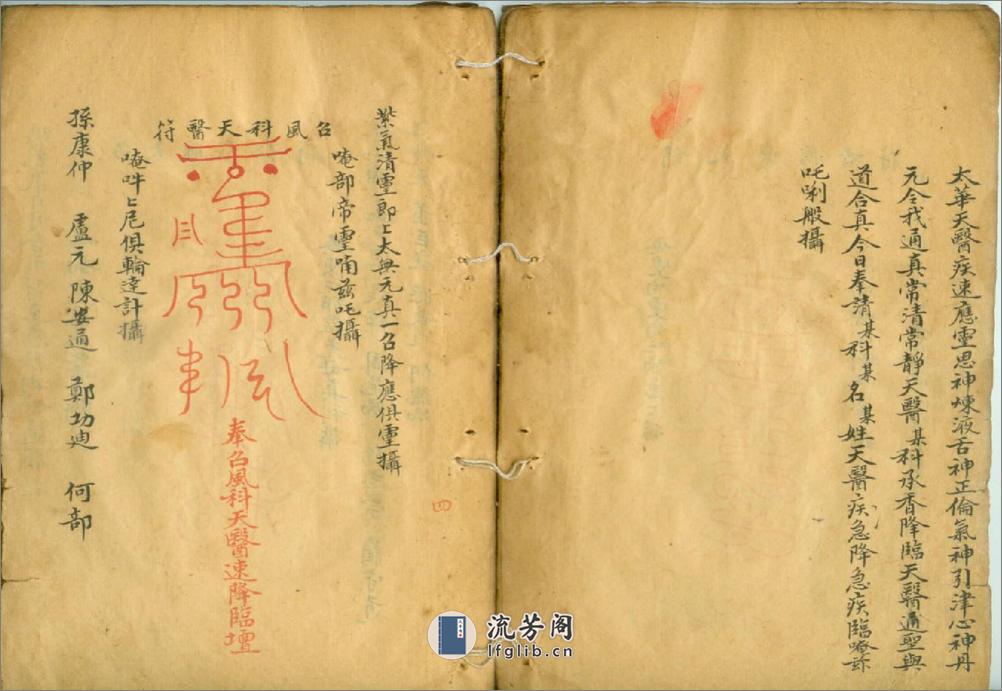 太華天醫疾速應靈思神煉液舌神正倫氣神引津心神丹
元令我通真常清常靜天醫某科承香降臨天醫通聖與
道合真今日奉請某科某名某姓天醫疾急降急疾臨唵
吒唎般攝
紫氣清靈即上太無元真一召降應俱靈攝
唵部帝靈喃茲吒攝
召風科天醫符
奉召風科天醫速降臨壇
唵吽上尼俱輪達計攝
孫康仲 盧元 陳安通 鄭功迪 何部
四
流芳阁
lfglib.cn